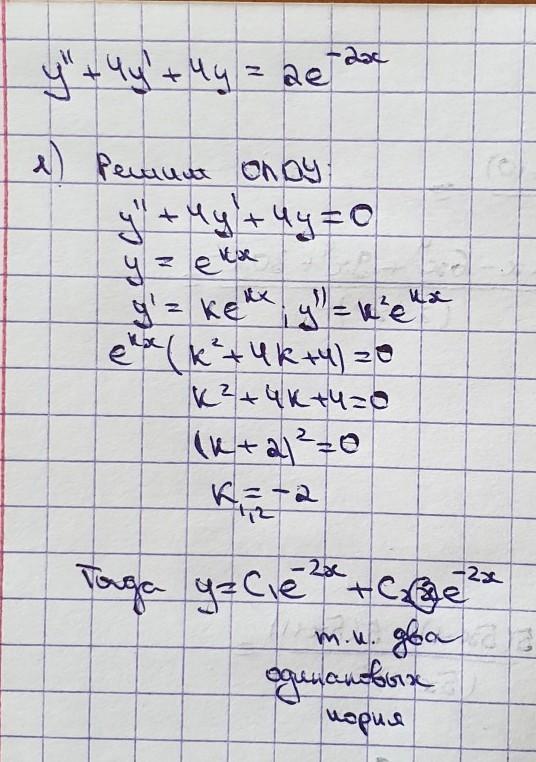 y'' + 4y' + 4y = 2e^{-2x}
1) Решим ОЛДУ:
y'' + 4y' + 4y = 0
y = e^{kx}
y' = ke^{kx}; y'' = k²e^{kx}
e^{kx}(k² + 4k + 4) = 0
k² + 4k + 4 = 0
(k + 2)² = 0
k_{1,2} = -2
Тогда y = C₁e^{-2x} + C₂xe^{-2x}
т.к. два
одинаковых
корня